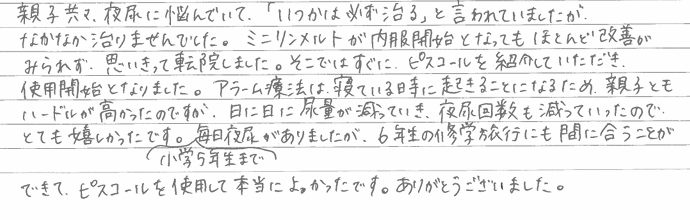 親子共々、夜尿に悩んでいて、「いつかは必ず治る」と言われていましたが、
なかなか治りませんでした。ミニリンメルトが内服開始となってもほとんど改善が
みられず、思いきって転院しました。そこではすぐに、ピスコールを紹介していただき、
使用開始となりました。アラーム療法は、寝ている時に起きることになるため、親子とも
ハードルが高かったのですが、日に日に尿量が減っていき、夜尿回数も減っていったので
とても嬉しかったです。毎日夜尿がありましたが、6年生の修学旅行にも間に合うことが
小学5年生まで
できて、ピスコールを使用して本当によかったです。ありがとうございました。